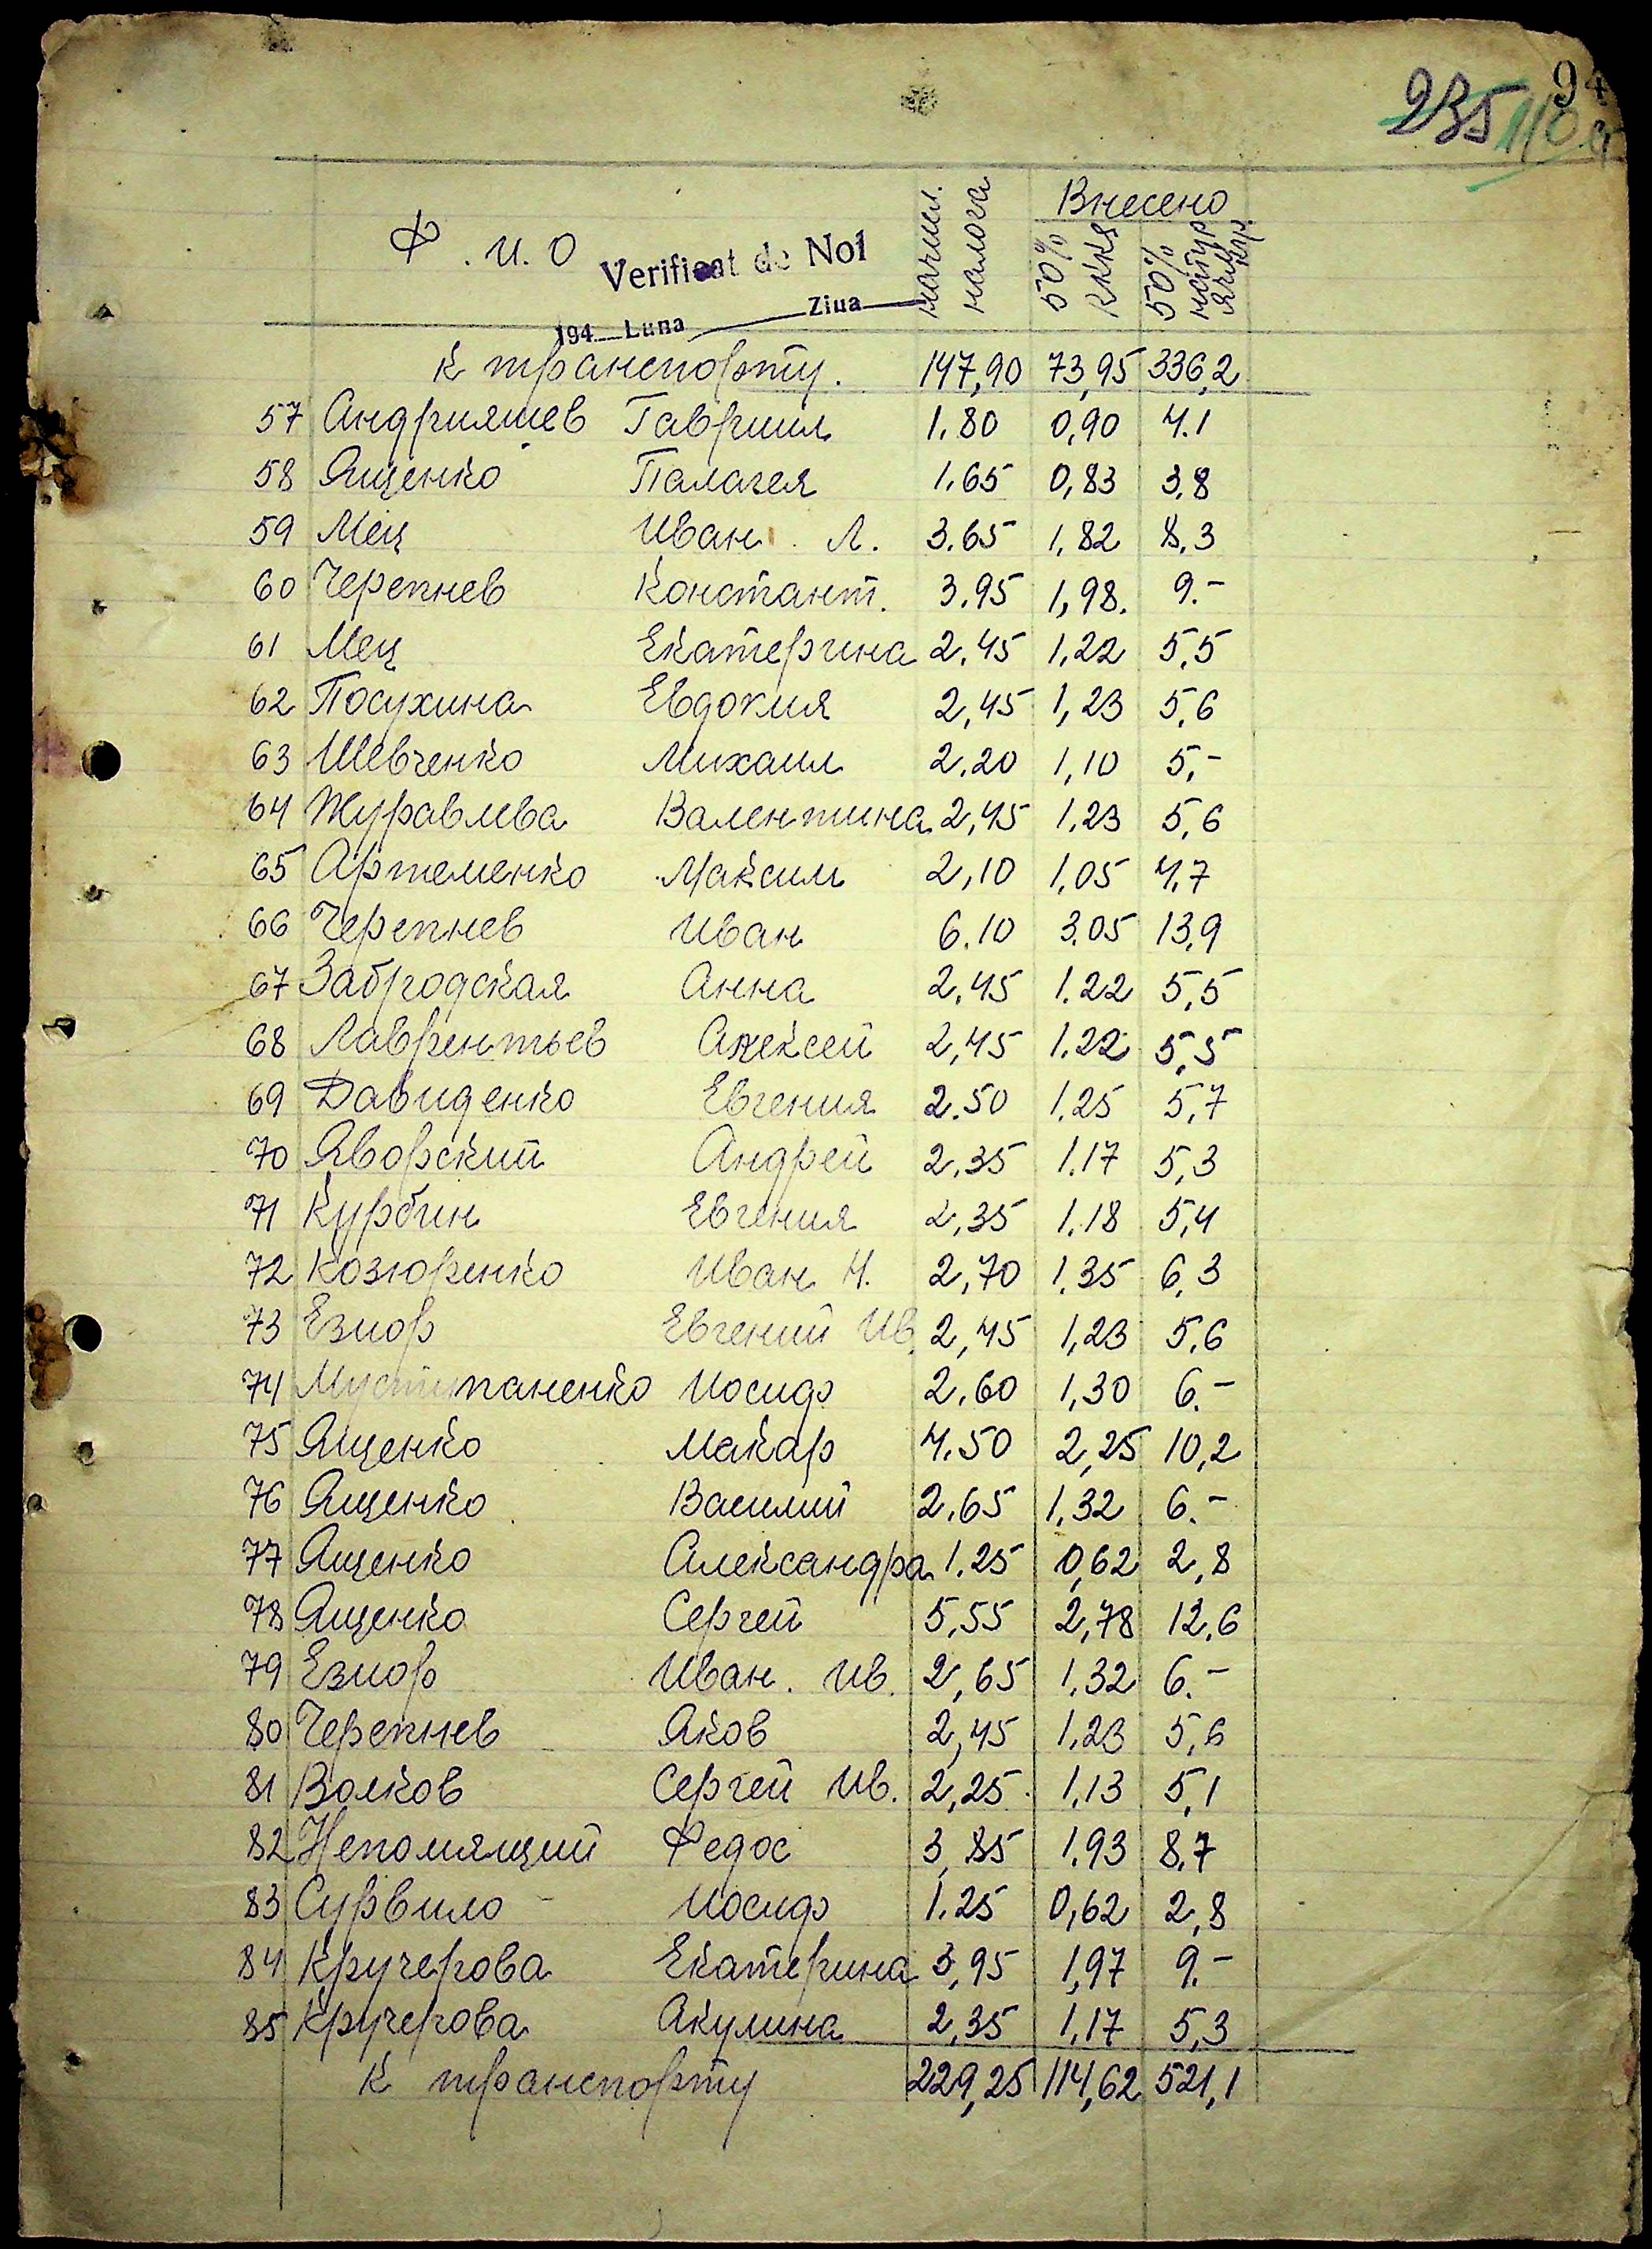 94
235 110
Внесено
Ф. И. О начисл. налога 50% RKKS 50% натур
Verificat de Noi
194 Luna Ziua
К транспорту. 147,90 73,95 336,2
57 Андрияшев Гавриил 1.80 0,90 4.1
58 Ященко Палагея 1.65 0,83 3,8
59 Мец Иван Л. 3.65 1,82 8,3
60 Черепнев Констант. 3.95 1,98. 9.-
61 Мец Екатерина 2.45 1,22 5,5
62 Посухина Евдокия 2,45 1,23 5,6
63 Шевченко Михаил 2.20 1,10 5,-
64 Журавлева Валентина 2,45 1,23 5,6
65 Артеменко Максим 2,10 1,05 4,7
66 Черепнев Иван 6.10 3.05 13,9
67 Забродская Анна 2,45 1.22 5,5
68 Лаврентьев Алексей 2,45 1.22 5,5
69 Давиденко Евгения 2.50 1.25 5,7
70 Яворский Андрей 2,35 1.17 5,3
71 Курбин Евгения 2,35 1.18 5,4
72 Козюренко Иван Ч. 2,70 1.35 6,3
73 Езиор Евгений Ив. 2,45 1,23 5,6
74 Мустипаненко Иосиф 2.60 1,30 6.-
75 Ященко Макар 4.50 2,25 10,2
76 Ященко Василий 2.65 1,32 6.-
77 Ященко Александра 1.25 0,62 2,8
78 Ященко Сергей 5,55 2,78 12,6
79 Езиор Иван. Ив. 2,65 1,32 6.-
80 Черепнев Яков 2,45 1,23 5,6
81 Волков Сергей Ив. 2,25 1,13 5,1
82 Непомящий Федос 3,85 1.93 8,7
83 Сурвило Иосиф 1.25 0,62 2,8
84 Кручерова Екатерина 3,95 1,97 9.-
85 Кручерова Акулина 2,35 1,17 5,3
К транспорту 229,25 114,62 521,1